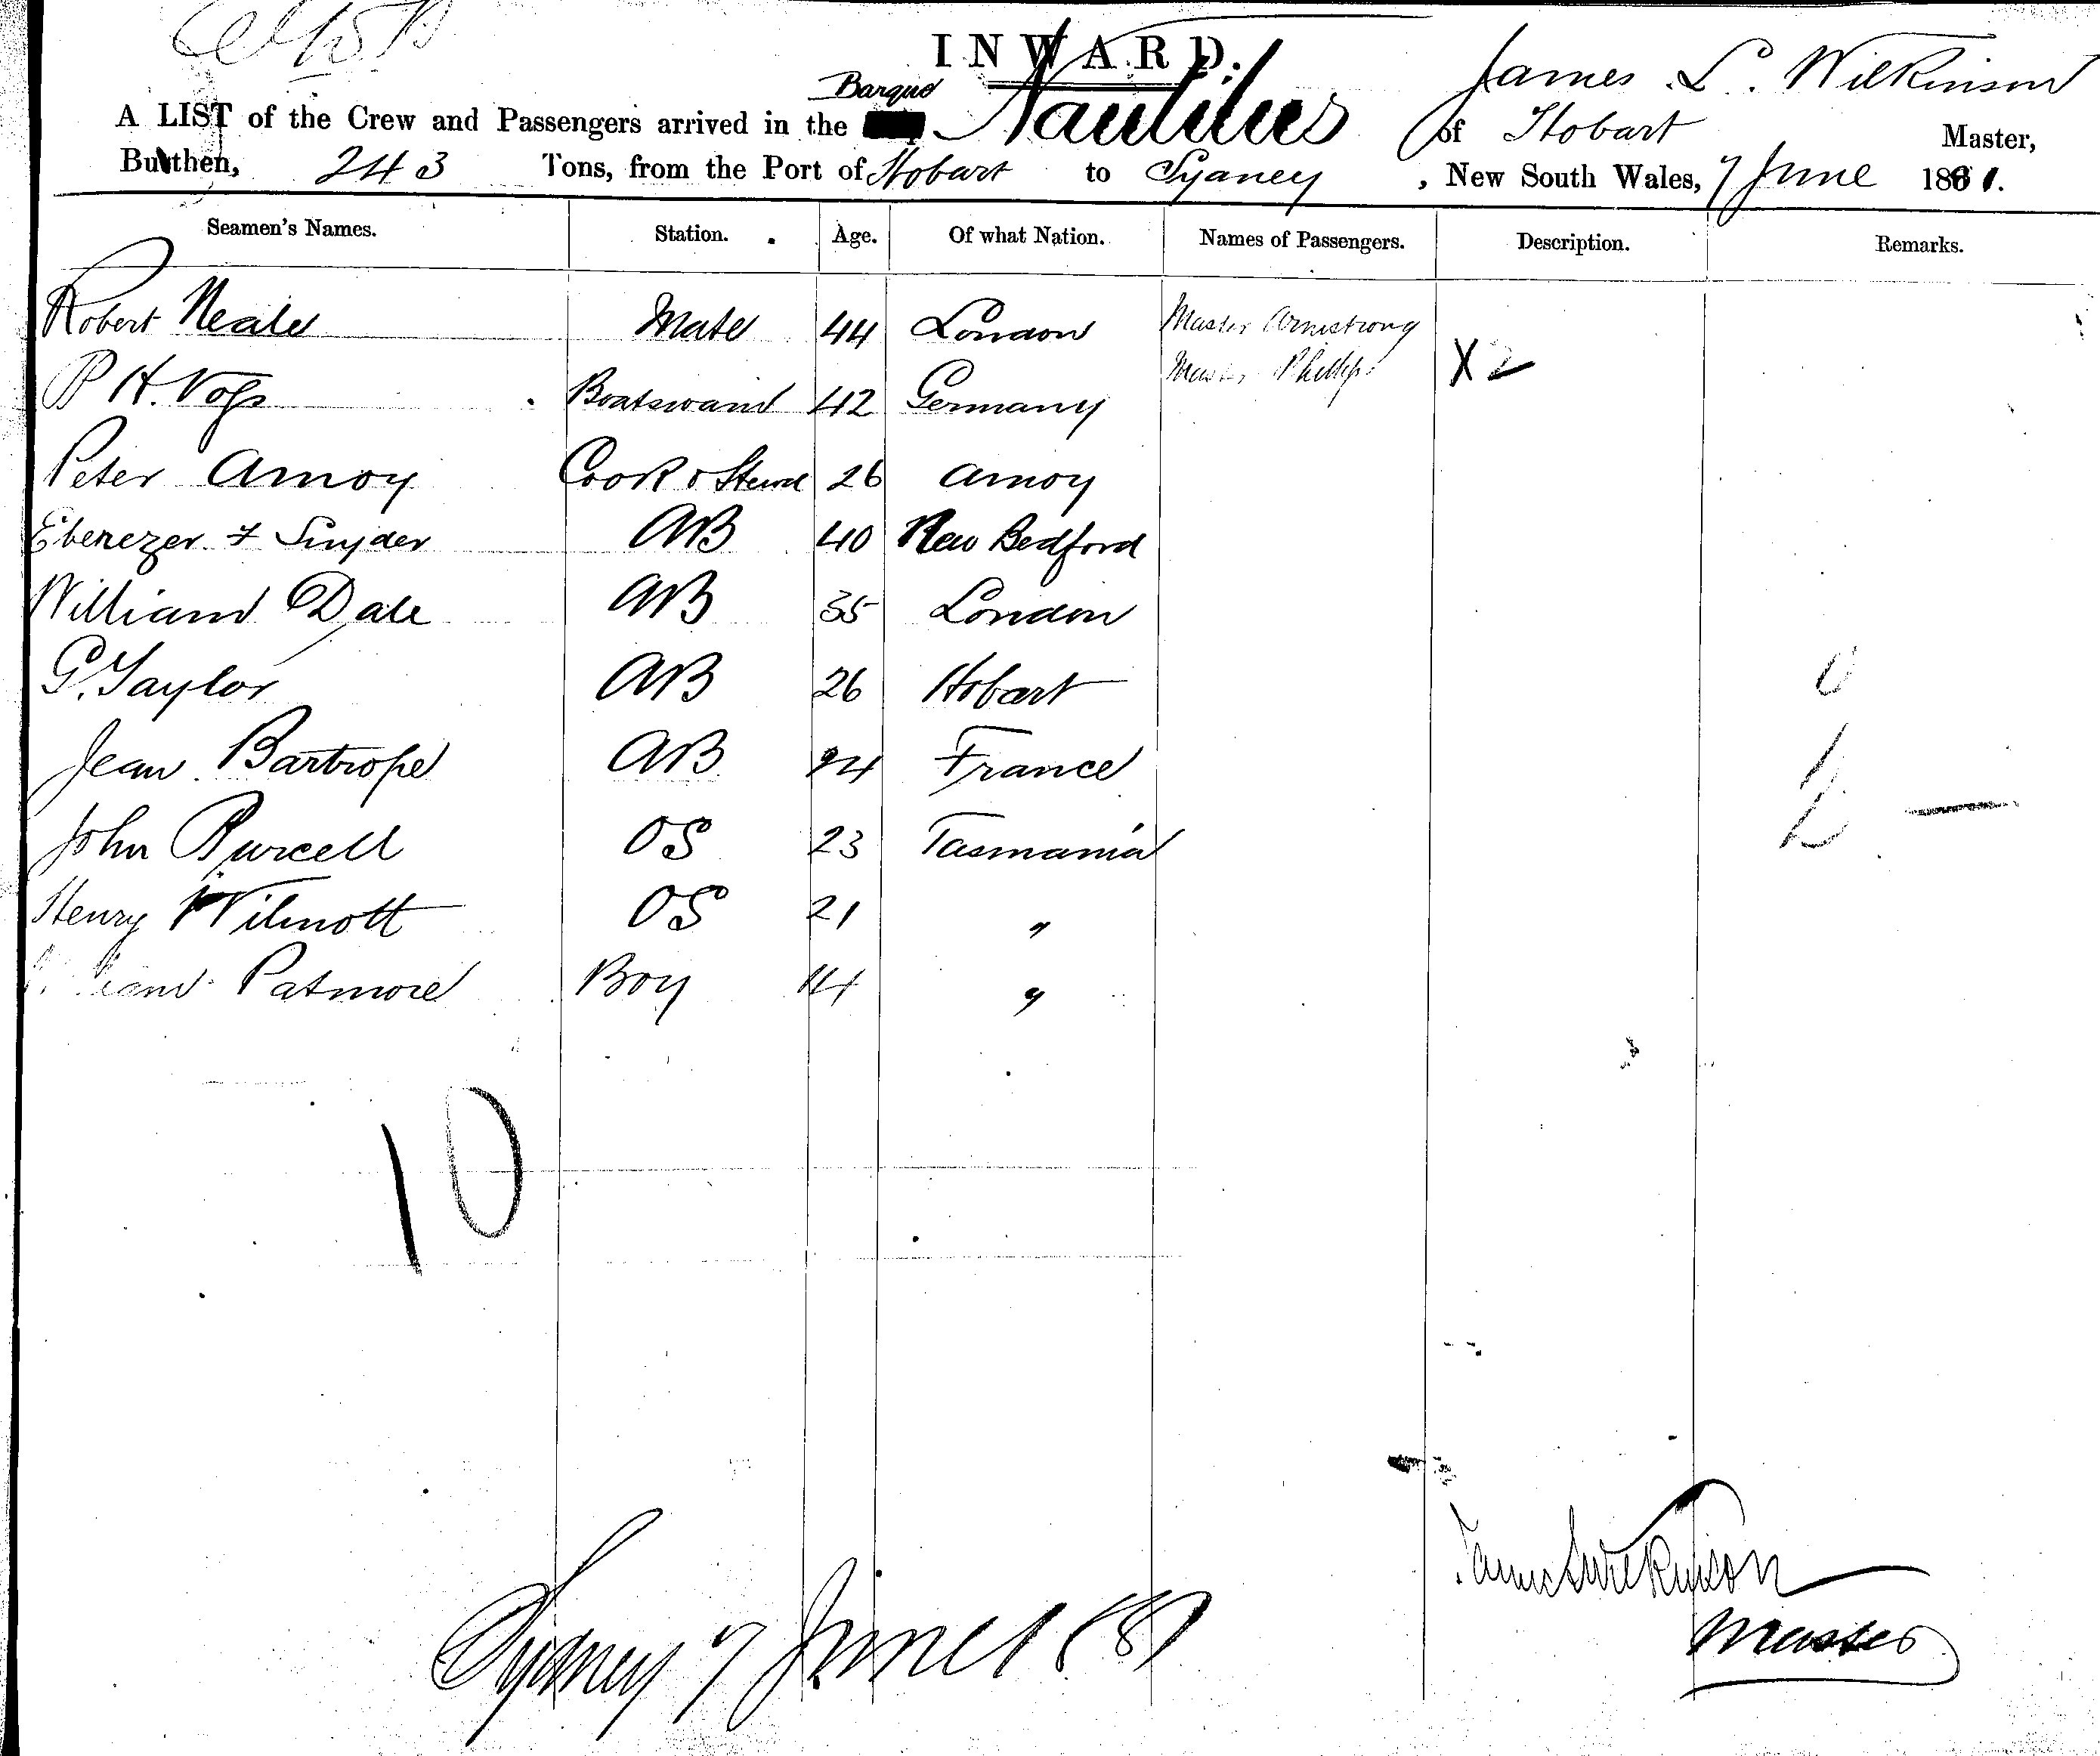 INWARD.
Barque
James L. Wilkinson
A LIST of the Crew and Passengers arrived in the Nautilus of Hobart Master,
Burthen, 243 Tons, from the Port of Hobart to Sydney, New South Wales, 7 June 1881.
Seamen's Names. Station. Age. Of what Nation. Names of Passengers. Description. Remarks.
Robert Neale Mate 44 London Master Armstrong
P H. Voss Boatswain 42 Germany Master Phillips X2
Peter Amoy Cook & Stewd 26 Amoy
Ebenezer F Snyder AB 40 New Bedford
William Dale AB 35 London
G. Taylor AB 26 Hobart
Jean Bartrope AB 24 France
John Purcell OS 23 Tasmania
Henry Wilmott OS 21 "
William Patmore Boy 14 "
10
James L Wilkinson
Master
Sydney 7 June 1881